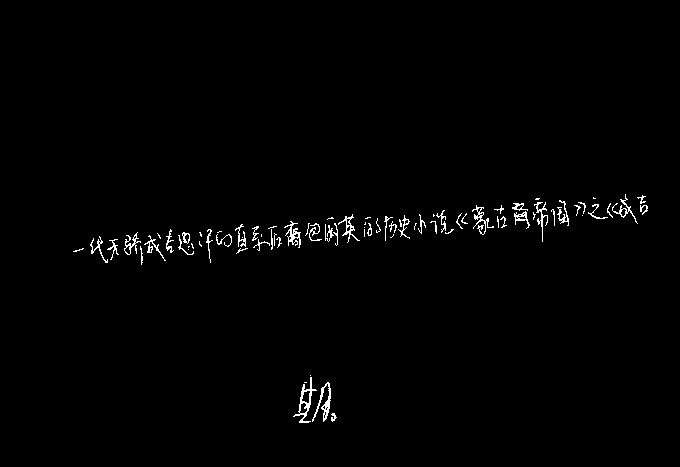 一代天骄成吉思汗的直系后裔包丽英的历史小说《蒙古帝国》之《成吉
期。